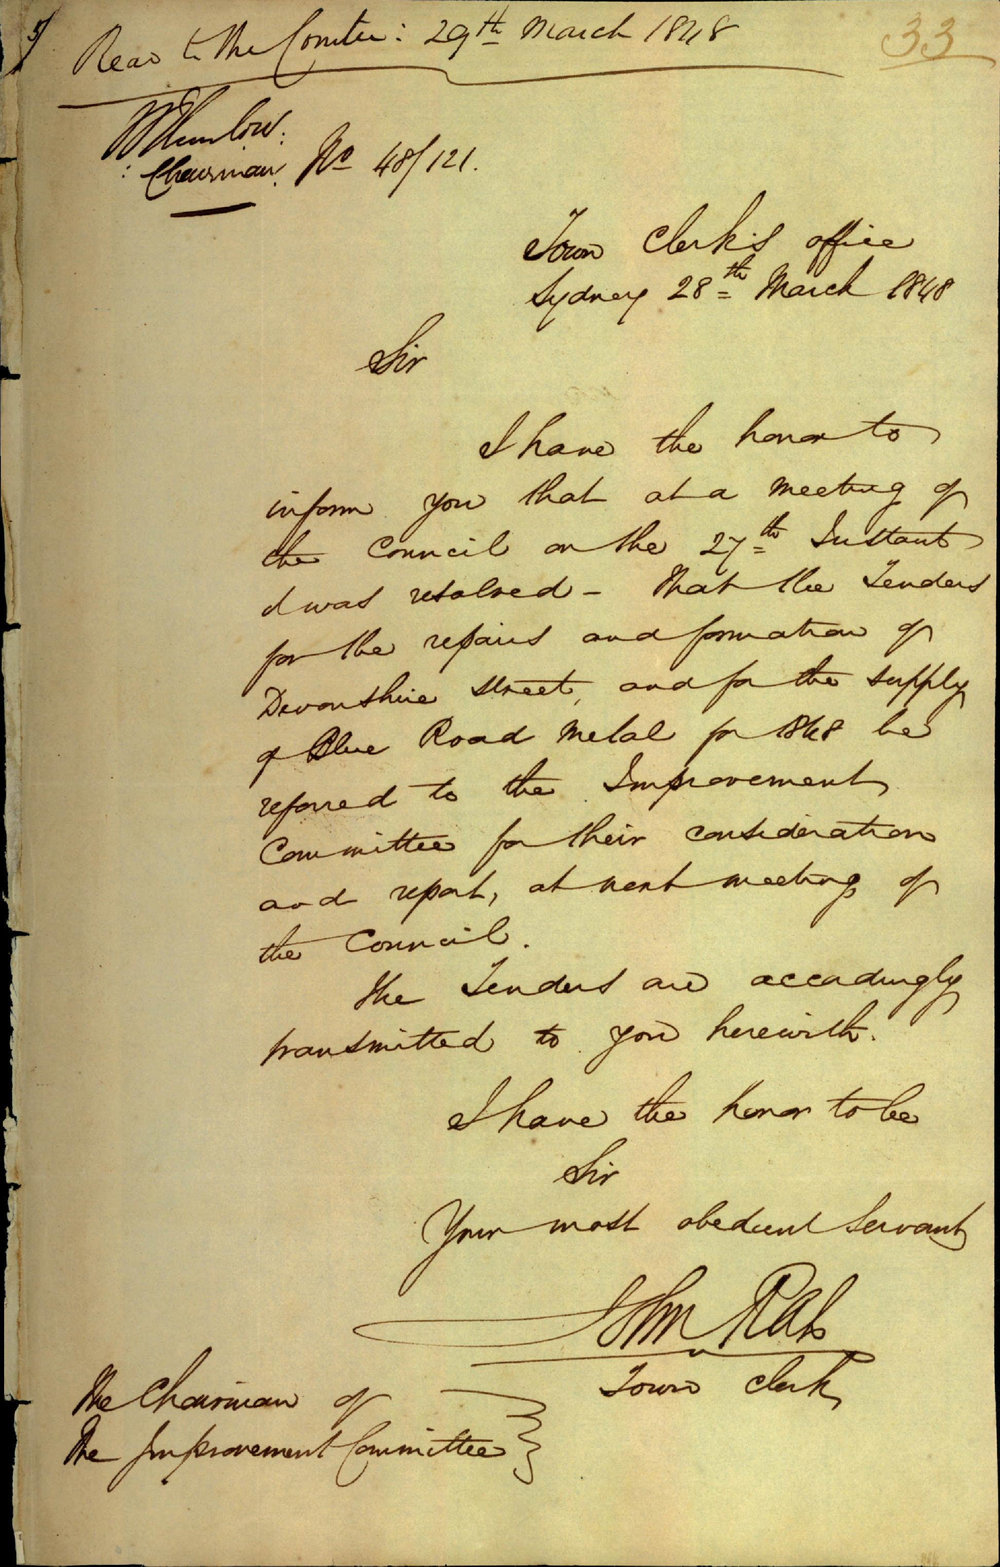 5/
Read to the Comtee: 29th March 1848
33
W Thurlow:
Chairman. No 48/121.
Town Clerk's office
Sydney 28th March 1848
Sir
I have the honor to
inform you that at a meeting of
the Council on the 27th Instant
it was resolved - That the Tenders
for the repairs and formation of
Devonshire Street, and for the supply
of Blue Road Metal for 1848 be
referred to the Improvement
Committee for their consideration
and report, at next meeting of
the Council.
The Tenders are accordingly
transmitted to you herewith.
I have the honor to be
Sir
Your most obedient Servant
John Rae
Town Clerk
The Chairman of
The Improvement Committee